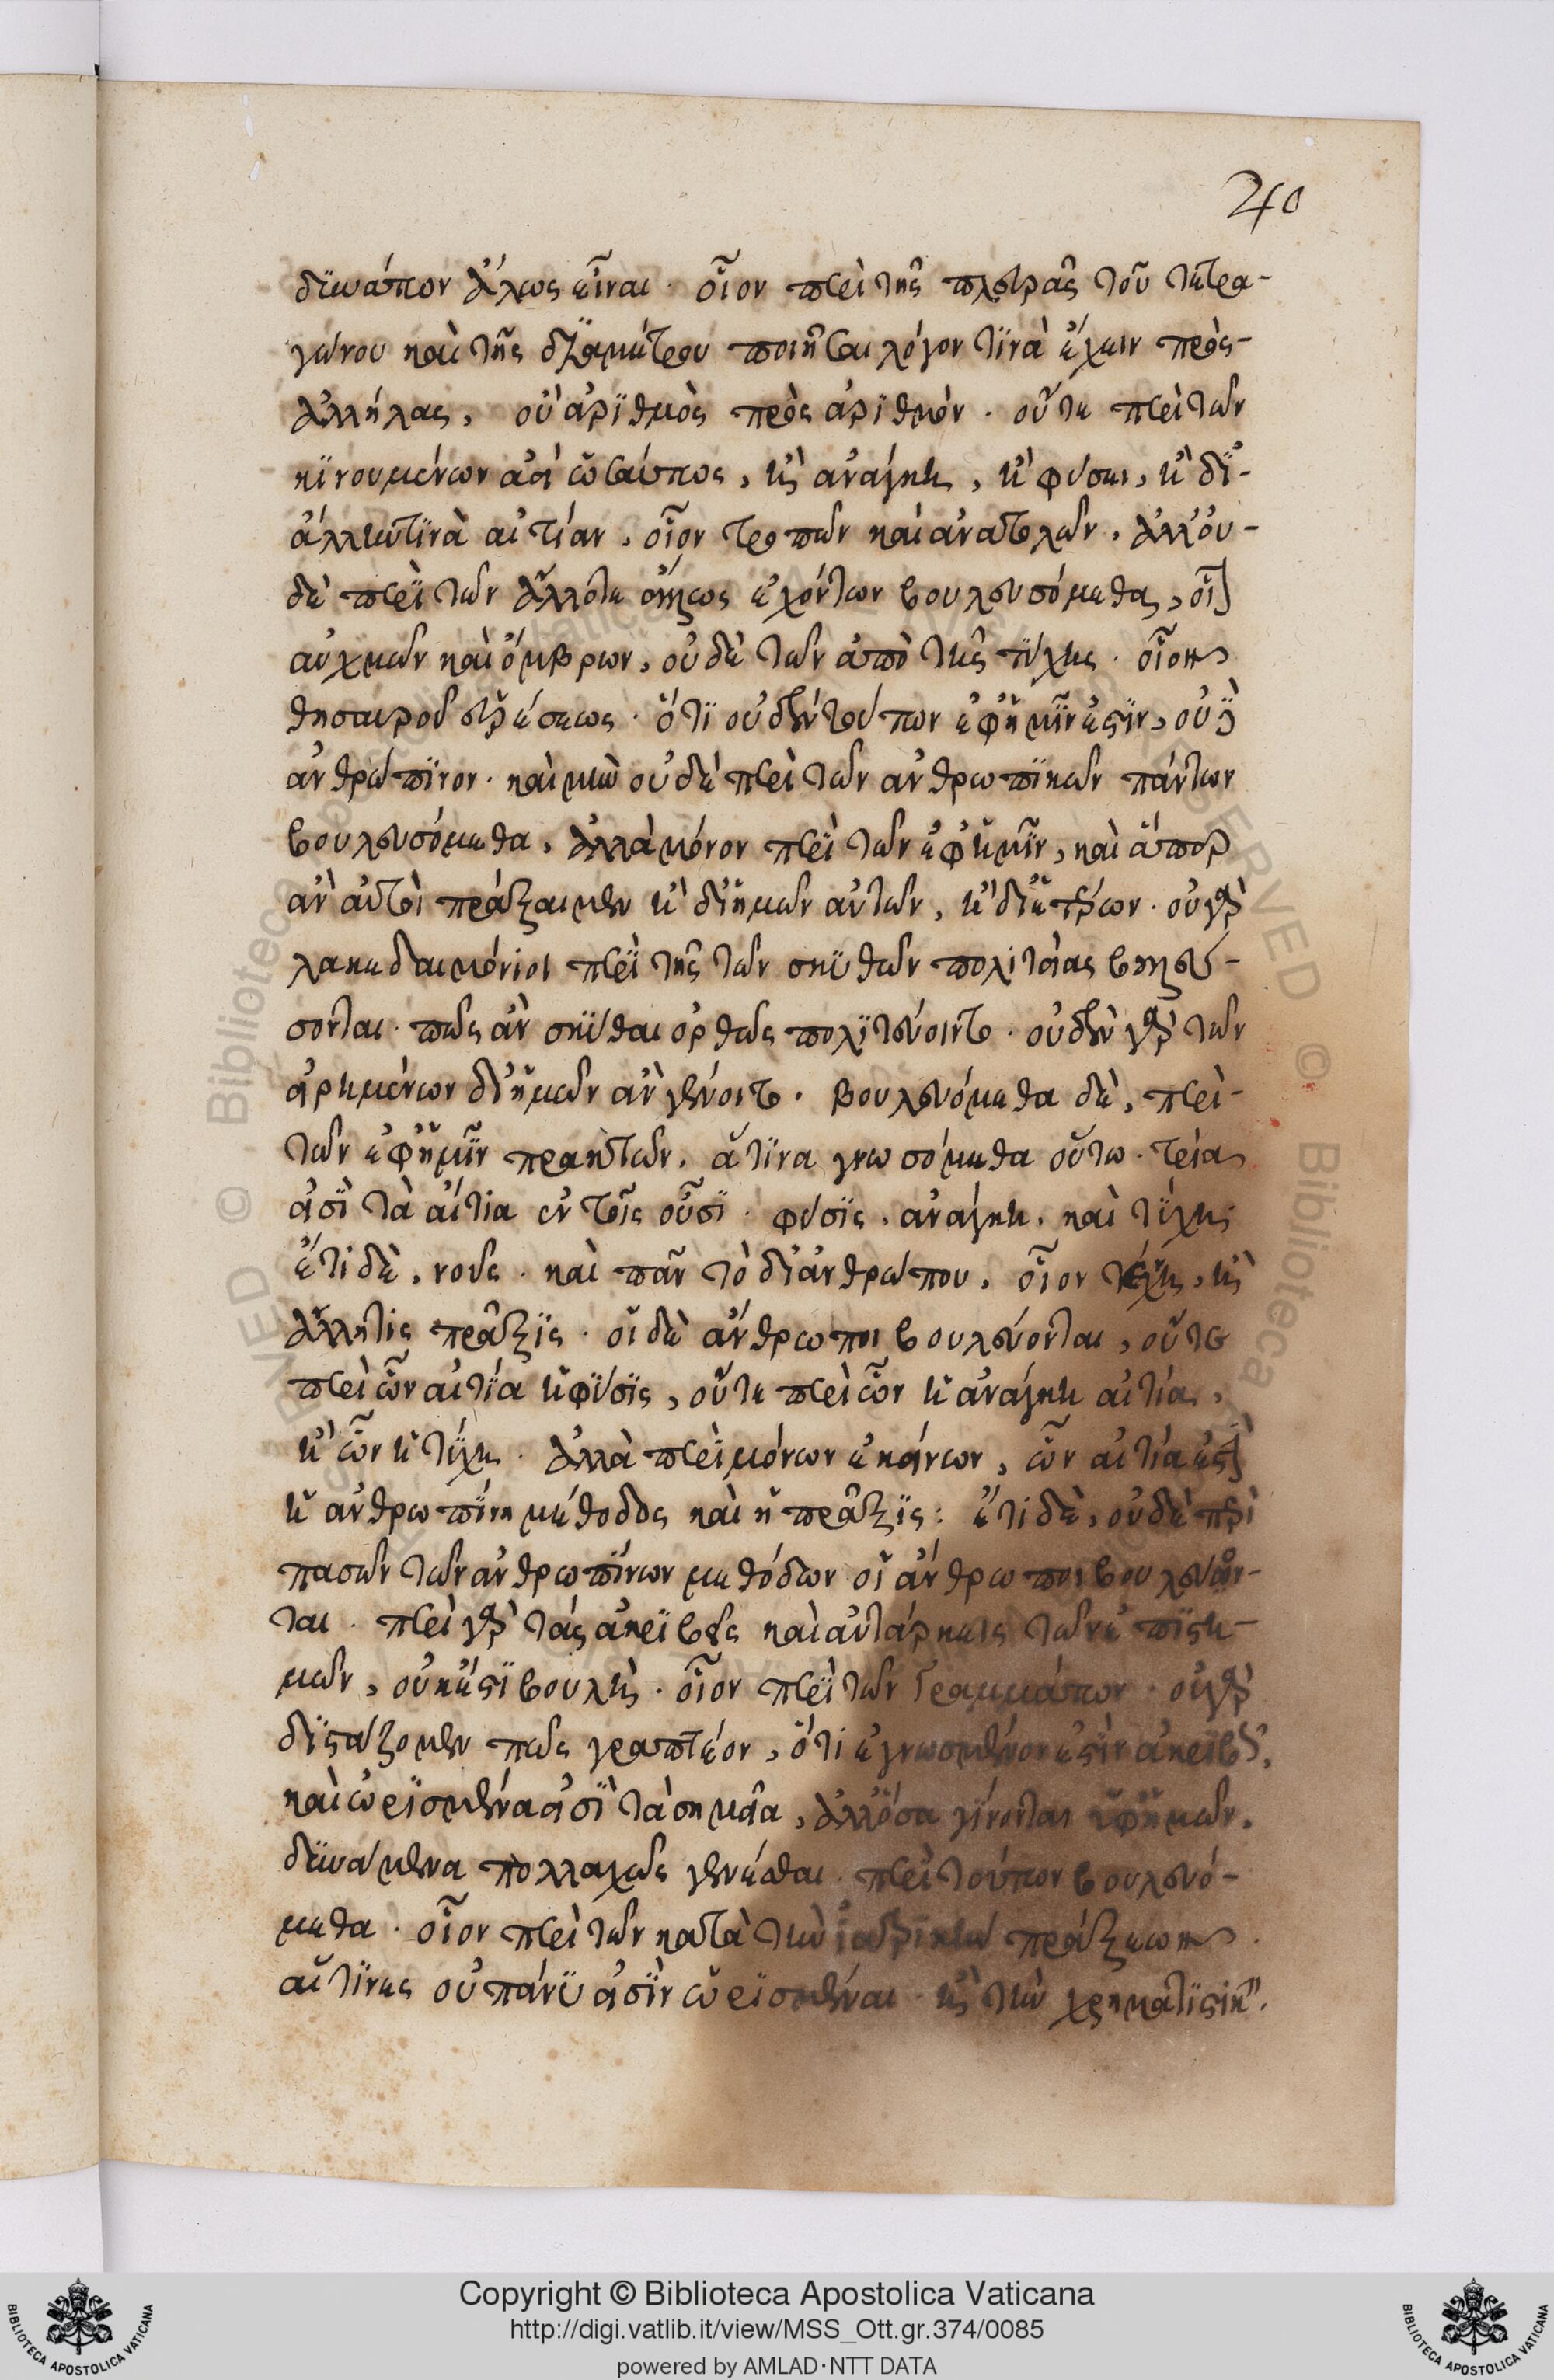 240
δϋνάτων ἄλλως εἶναι · οἷον περὶ τῆς πλευρᾶς τοῦ τετρα-
γώνου καὶ τῆς διαμέτρου ποιῆσαι λόγον τϊνὰ ἔχειν πρὸς-
ἀλλήλας, οὐ ἀρϊθμὸς πρὸς ἀρϊθμόν · οὔτε περὶ τῶν
κϊνουμένων ἀεὶ ὡσαύτως, ἢ ἀνάγκη, ἢ φύσει, ἢ δϊ-
ἄλλην τϊνὰ αἰτίαν, οἷον τροπῶν καὶ ἀνατολῶν, ἀλλ' οὐ-
δὲ περὶ τῶν ἄλλοτε ἄλλως ἐχόντων βουλευσόμεθα, οἷον
αὐχμῶν καὶ ὄμβρων, οὐδὲ τῶν ἀπὸ τῆς τύχης · οἷον
θησαυροῦ εὑρέσεως · ὅτϊ οὐδὲν τούτων ἐφ' ἡμῖν ἐστϊν, οὐδ'
ἀνθρώπϊνον · καὶ μὴν οὐδὲ περὶ τῶν ἀνθρωπϊκῶν πάντων
βουλευσόμεθα, ἀλλὰ μόνον περὶ τῶν ἐφ' ἡμῖν, καὶ ἅπερ
ἂν αὐτοὶ πράξαιμεν ἢ δι' ἡμῶν αὐτῶν, ἢ δι' ἑτέρων · οὐ γὰρ
λακεδαιμόνιοι περὶ τῆς τῶν σκϋθῶν πολιτείας βουλεύ-
σονται · πῶς ἂν σκύθαι ὀρθῶς πολϊτεύοιντο · οὐδὲν γὰρ τῶν
εἰρημένων δι' ἡμῶν ἂν γένοιτο · βουλευόμεθα δὲ, περὶ-
τῶν ἐφ' ἡμῖν πρακτῶν, ἅτϊνα γνωσόμεθα οὕτω · τρία
εἰσϊ τὰ αἴτια ἐν τοῖς οὖσϊ · φύσϊς, ἀνάγκη, καὶ τύχη
ἔτι δὲ, νοῦς · καὶ πᾶν τὸ δι' ἀνθρώπου, οἷον τέχνη, ἢ
ἄλλη τις πρᾶξϊς · οἱ δὲ ἄνθρωποι βουλεύονται, οὔτε
περὶ ὧν αἰτία ἡ φύσϊς, οὔτε περὶ ὧν ἡ ἀνάγκη αἰτία,
ἢ ὧν ἡ τύχη · ἀλλὰ περὶ μόνων ἐκείνων, ὧν αἰτία ἐστὶν
ἡ ἀνθρωπίνη μέθοδος καὶ ἡ πρᾶξϊς : ἔτι δὲ, οὐδὲ περὶ
πασῶν τῶν ἀνθρωπίνων μεθόδων οἱ ἄνθρωποι βουλεύον-
ται · περὶ γὰρ τὰς ἀκρϊβεῖς καὶ αὐτάρκεις τῶν ἐπϊστη-
μῶν, οὐκ ἔστϊ βουλὴ · οἷον περὶ τῶν γραμμάτων · οὐ γὰρ
δϊστάζομεν πῶς γραπτέον, ὅτι ἐγνωσμένον ἐστϊν ἀκρϊβῶς,
καὶ ὡρϊσμένα εἰσϊ τὰ σημεῖα, ἀλλ' ὅσα γίνονται ὑφ' ἡμῶν.
δϋνάμενα πολλαχῶς γενέσθαι · περὶ τούτων βουλευό-
μεθα · οἷον περὶ τῶν κατὰ τὴν ἰατρϊκὴν πράξεων ·
αἵτϊνες οὐ πάνϋ εἰσϊν ὡρϊσμέναι · ἢ τὴν χρηματϊστικὴν.
Copyright © Biblioteca Apostolica Vaticana
http://digi.vatlib.it/view/MSS_Ott.gr.374/0085
powered by AMLAD·NTT DATA
BIBLIOTECA APOSTOLICA VATICANA
BIBLIOTECA APOSTOLICA VATICANA